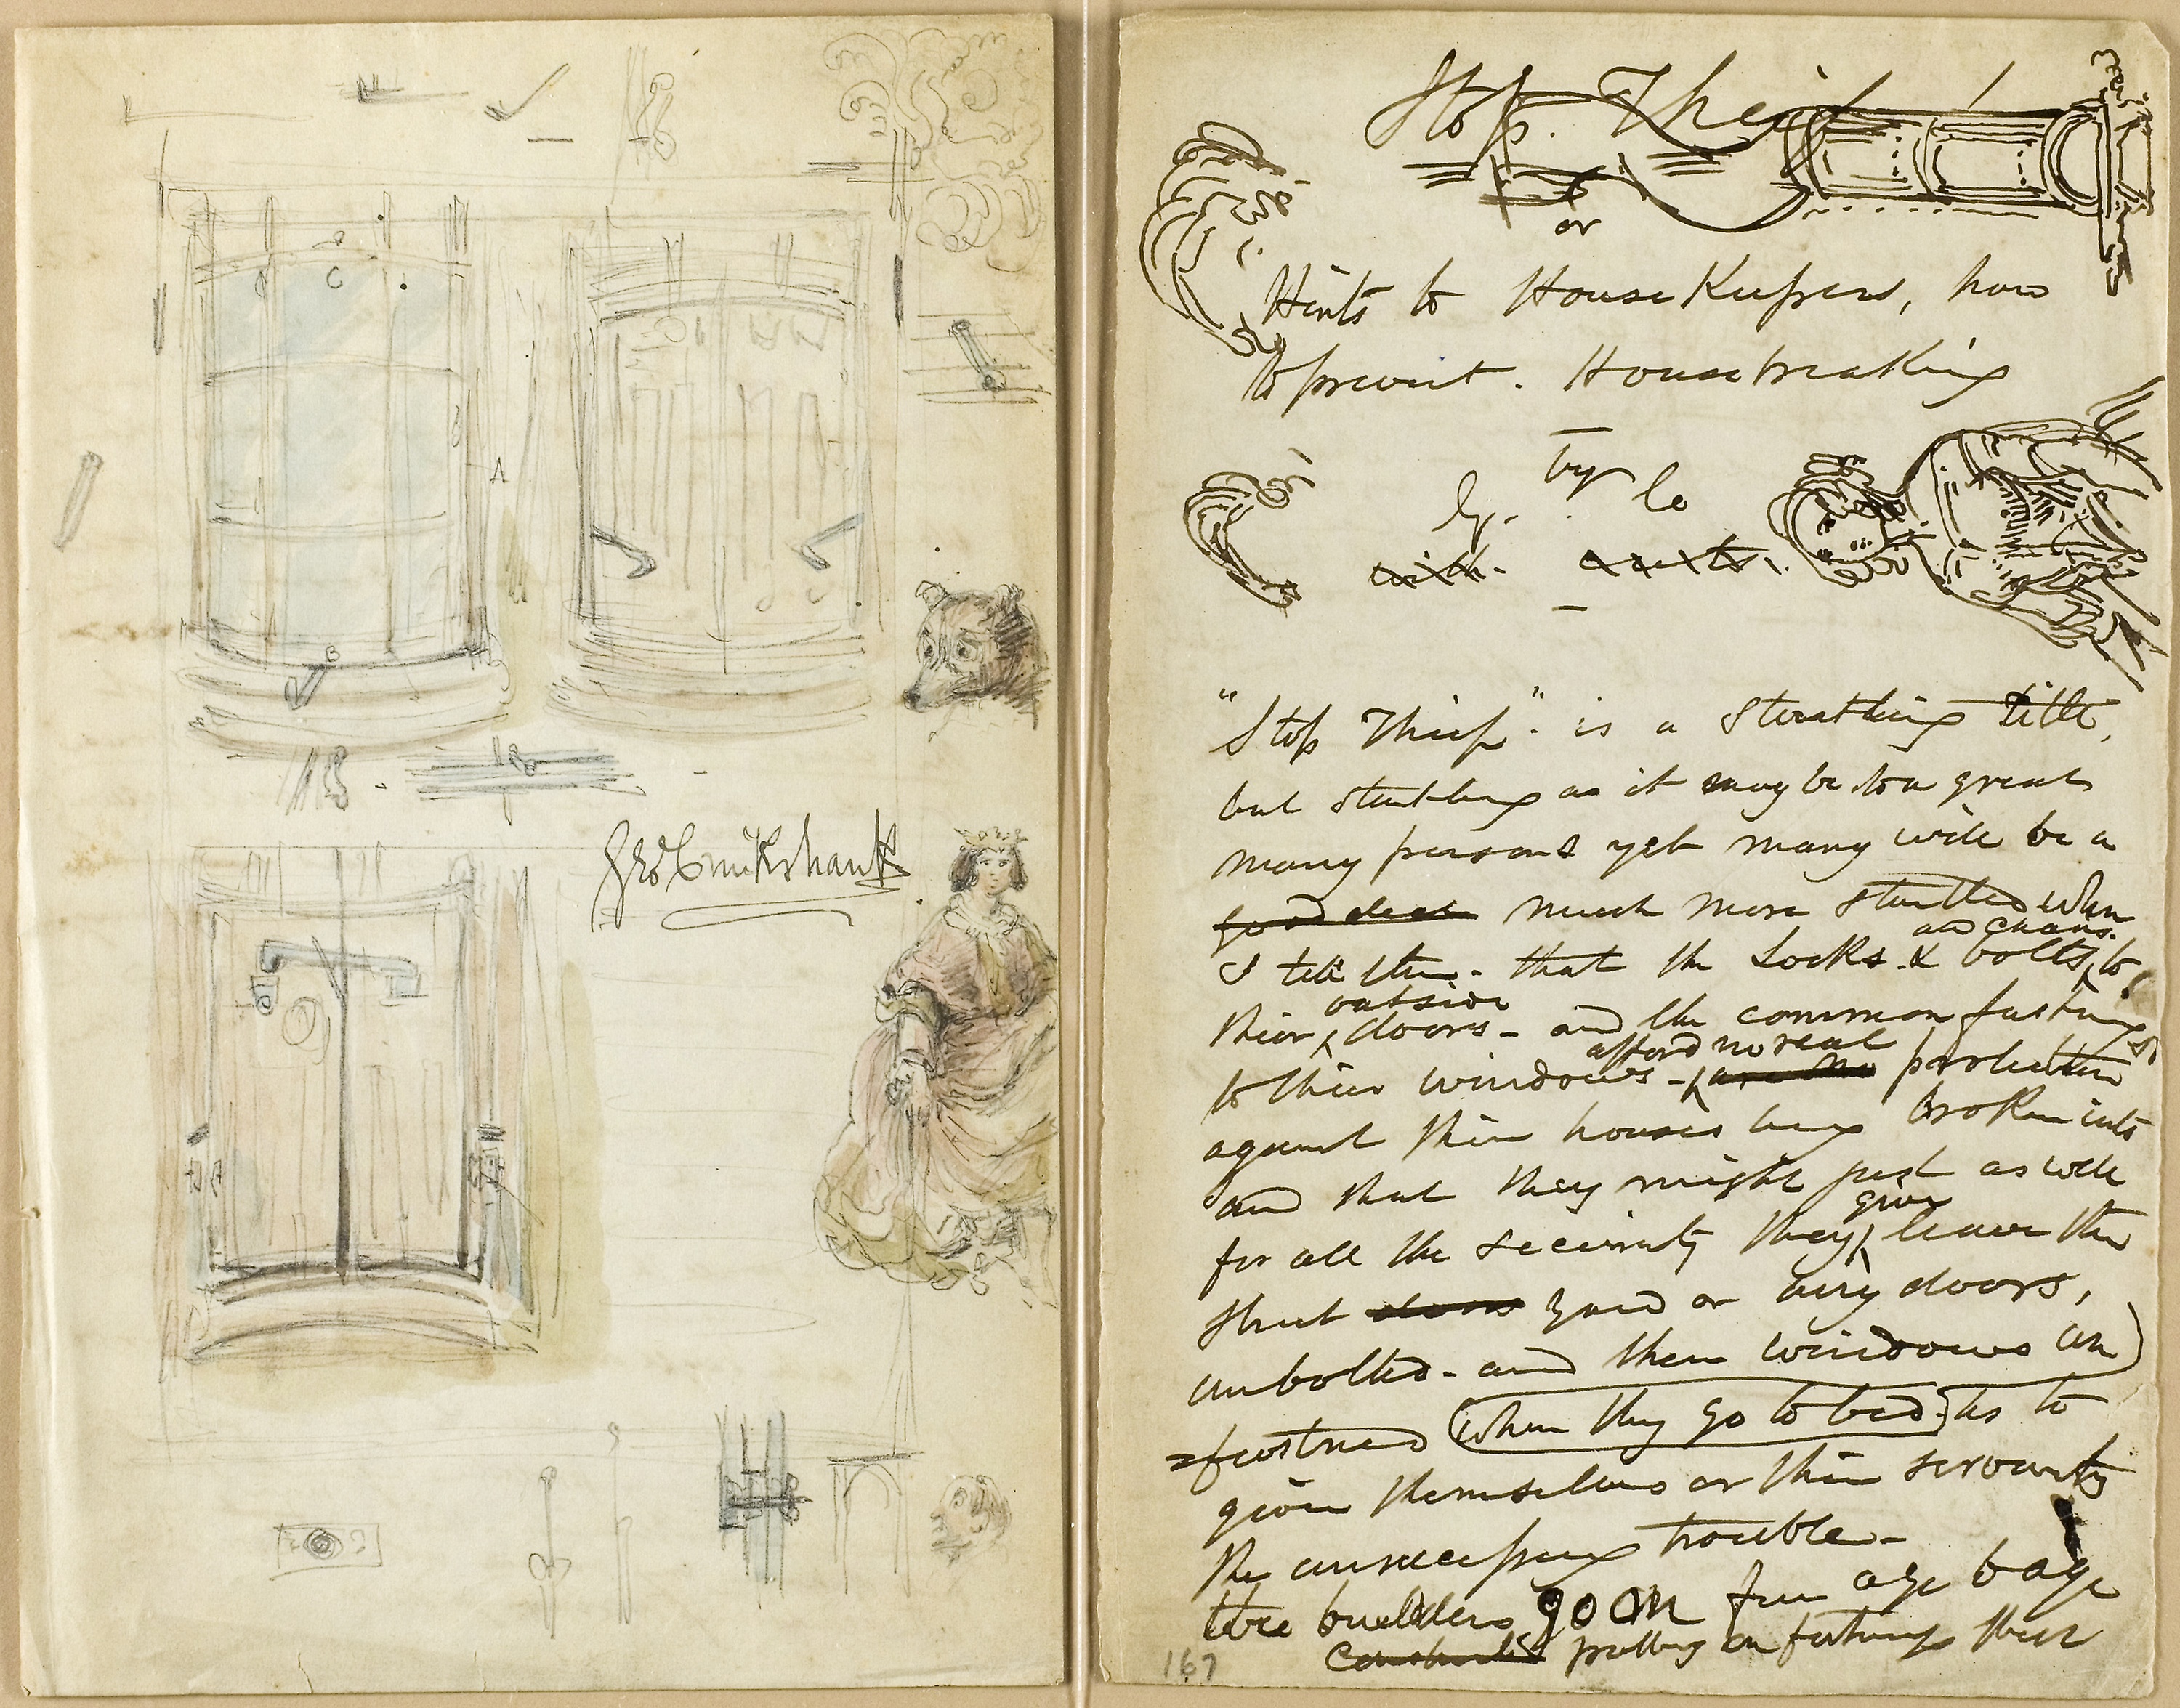 C
A
B
Geo Cruikshank
Stop. Thief !
or
Hints to House Keepers, how
to prevent. Housebreaking
by
with.
"Stop Thief". is a startling title,
but startling as it may be to a great
many persons yet many will be a
good deal much more startled when
and chains.
I tell them - that the Locks. & bolts, to
outside
their doors - and the common fastnings
afford no real
to their windows - are no protection
against their houses being broken into
and that they might just as well
give
for all the security they leave the
street doors yard or airy doors,
unbolted - and their windows un
=fastned when they go to bed. as to
give themselves or their servants
the unnecessary trouble -
the builders go on from age to age
putting on fastnings these
167